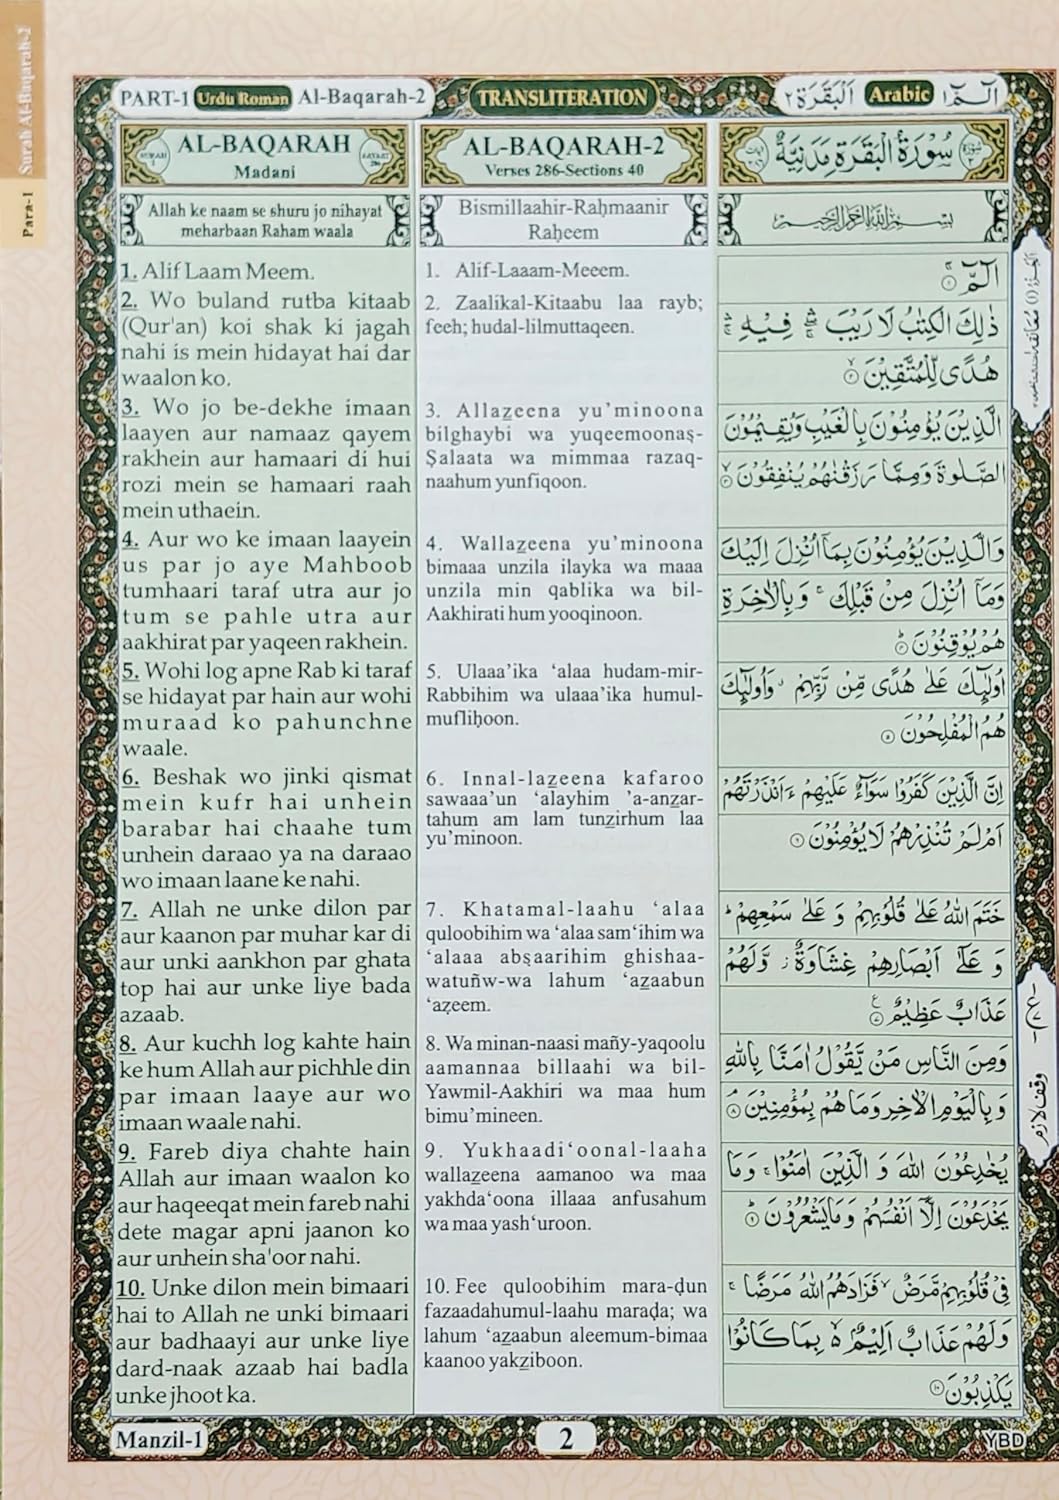 Surah Al-Baqarah-2
Para-1
PART-1 Urdu Roman Al-Baqarah-2
TRANSLITERATION
البقرة ٢ Arabic الٓمّٓ ١
SURAH AL-BAQARAH AAYAAT 286
Madani
Allah ke naam se shuru jo nihayat
meharbaan Raham waala
1. Alif Laam Meem.
2. Wo buland rutba kitaab
(Qur'an) koi shak ki jagah
nahi is mein hidayat hai dar
waalon ko.
3. Wo jo be-dekhe imaan
laayen aur namaaz qayem
rakhein aur hamaari di hui
rozi mein se hamaari raah
mein uthaein.
4. Aur wo ke imaan laayein
us par jo aye Mahboob
tumhaari taraf utra aur jo
tum se pahle utra aur
aakhirat par yaqeen rakhein.
5. Wohi log apne Rab ki taraf
se hidayat par hain aur wohi
muraad ko pahunchne
waale.
6. Beshak wo jinki qismat
mein kufr hai unhein
barabar hai chaahe tum
unhein daraao ya na daraao
wo imaan laane ke nahi.
7. Allah ne unke dilon par
aur kaanon par muhar kar di
aur unki aankhon par ghata
top hai aur unke liye bada
azaab.
8. Aur kuchh log kahte hain
ke hum Allah aur pichhle din
par imaan laaye aur wo
imaan waale nahi.
9. Fareb diya chahte hain
Allah aur imaan waalon ko
aur haqeeqat mein fareb nahi
dete magar apni jaanon ko
aur unhein sha'oor nahi.
10. Unke dilon mein bimaari
hai to Allah ne unki bimaari
aur badhaayi aur unke liye
dard-naak azaab hai badla
unke jhoot ka.
AL-BAQARAH-2
Verses 286-Sections 40
Bismillaahir-Raḥmaanir
Raḥeem
1. Alif-Laaam-Meeem.
2. Zaalikal-Kitaabu laa rayb;
feeh; hudal-lilmuttaqeen.
3. Allazeena yu’minoona
bilghaybi wa yuqeemoonaṣ-
Ṣalaata wa mimmaa razaq-
naahum yunfiqoon.
4. Wallazeena yu’minoona
bimaaa unzila ilayka wa maaa
unzila min qablika wa bil-
Aakhirati hum yooqinoon.
5. Ulaaa’ika ‘alaa hudam-mir-
Rabbihim wa ulaaa’ika humul-
mufliḥoon.
6. Innal-lazeena kafaroo
sawaaa’un ‘alayhim ’a-anzar-
tahum am lam tunzirhum laa
yu’minoon.
7. Khatamal-laahu ‘alaa
quloobihim wa ‘alaa sam‘ihim wa
‘alaaa abṣaarihim ghishaa-
watuñw-wa lahum ‘azaabun
‘aẓeem.
8. Wa minan-naasi mañy-yaqoolu
aamannaa billaahi wa bil-
Yawmil-Aakhiri wa maa hum
bimu’mineen.
9. Yukhaadi‘oonal-laaha
wallazeena aamanoo wa maa
yakhda‘oona illaaa anfusahum
wa maa yash‘uroon.
10. Fee quloobihim mara-ḍun
fazaadahumul-laahu maraḍa; wa
lahum ‘azaabun aleemum-bimaa
kaanoo yakziboon.
سُوْرَةُ الْبَقَرَةِ مَدَنِيَّةٌ
بِسْمِ اللهِ الرَّحْمٰنِ الرَّحِيْمِ
الٓمّٓ ۚ ۝١
ذٰلِكَ الْكِتٰبُ لَا رَيْبَ ۛ فِيْهِ ۛ
هُدًى لِّلْمُتَّقِيْنَ ۙ ۝٢
الَّذِيْنَ يُؤْمِنُوْنَ بِالْغَيْبِ وَيُقِيْمُوْنَ
الصَّلٰوةَ وَمِمَّا رَزَقْنٰهُمْ يُنْفِقُوْنَ ۙ ۝٣
وَالَّذِيْنَ يُؤْمِنُوْنَ بِمَآ اُنْزِلَ اِلَيْكَ
وَمَآ اُنْزِلَ مِنْ قَبْلِكَ ۚ وَبِالْاٰخِرَةِ
هُمْ يُوْقِنُوْنَ ؕ ۝٤
اُولٰٓئِكَ عَلٰى هُدًى مِّنْ رَّبِّهِمْ ۗ وَاُولٰٓئِكَ
هُمُ الْمُفْلِحُوْنَ ۝٥
اِنَّ الَّذِيْنَ كَفَرُوْا سَوَآءٌ عَلَيْهِمْ ءَاَنْذَرْتَهُمْ
اَمْ لَمْ تُنْذِرْهُمْ لَا يُؤْمِنُوْنَ ۝٦
خَتَمَ اللهُ عَلٰى قُلُوْبِهِمْ وَ عَلٰى سَمْعِهِمْ ؕ
وَ عَلٰٓى اَبْصَارِهِمْ غِشَاوَةٌ ز وَّلَهُمْ
عَذَابٌ عَظِيْمٌ ۝٧
وَمِنَ النَّاسِ مَنْ يَّقُوْلُ اٰمَنَّا بِاللهِ
وَبِالْيَوْمِ الْاٰخِرِ وَمَا هُمْ بِمُؤْمِنِيْنَ ۘ ۝٨
يُخٰدِعُوْنَ اللهَ وَ الَّذِيْنَ اٰمَنُوْا ۚ وَمَا
يَخْدَعُوْنَ اِلَّآ اَنْفُسَهُمْ وَمَا يَشْعُرُوْنَ ؕ ۝٩
فِيْ قُلُوْبِهِمْ مَّرَضٌ ۙ فَزَادَهُمُ اللهُ مَرَضًا ۚ
وَلَهُمْ عَذَابٌ اَلِيْمٌۢ ۵ بِمَا كَانُوْا
يَكْذِبُوْنَ ۝١٠
وقف لازم
Manzil-1
2
YBD